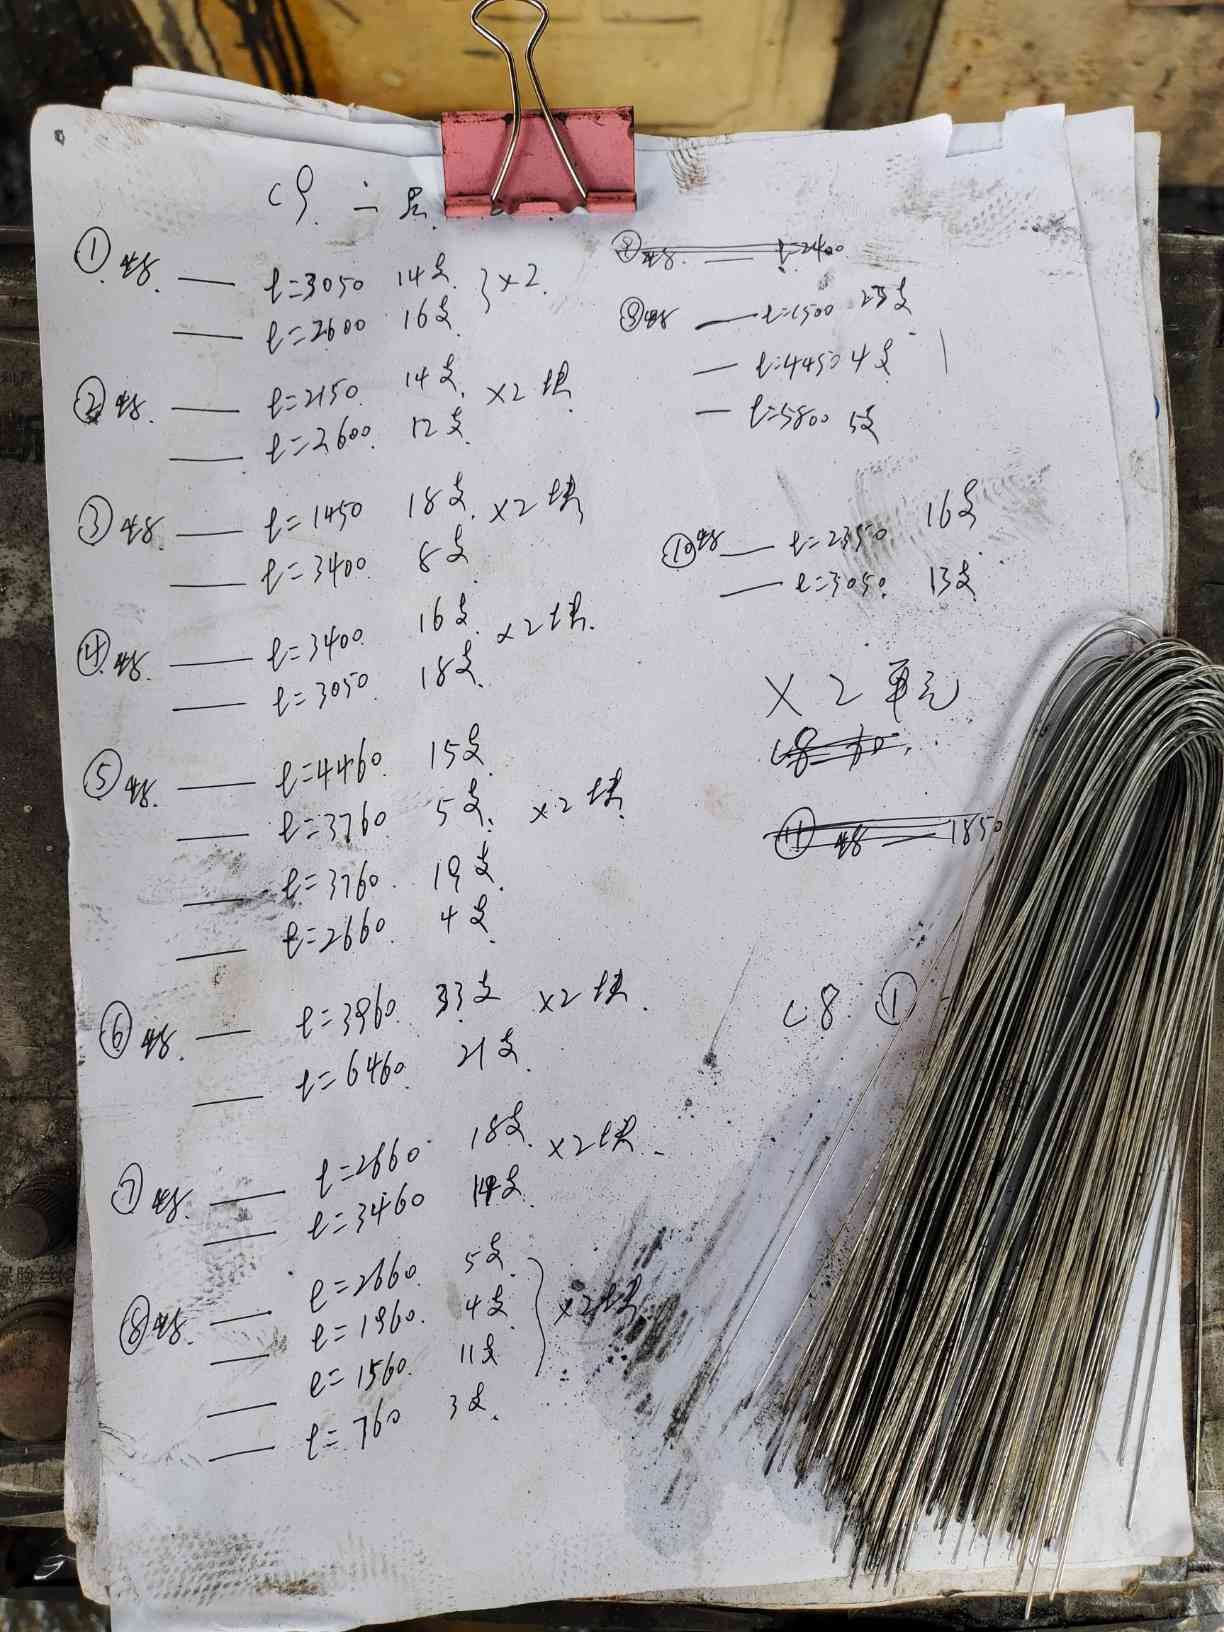 C8. 二层
① φ8. — l=3050 14支 } ×2.
— l=2600 16支
② φ8. — l=2150. 14支. ×2块
— l=2600. 12支.
③ φ8. — l=1450 18支. ×2块
— l=3400. 8支.
④ φ8. — l=3400. 16支. ×2块.
— l=3050. 18支.
⑤ φ8. — l=4460. 15支.
— l=3760 5支. ×2块
— l=3760. 19支.
— l=2660. 4支.
⑥ φ8. — l=3960. 33支 ×2块.
— l=6460. 21支.
⑦ φ8. — l=2660. 18支. ×2块.
— l=3460 14支.
⑧ φ8. — l=2660. 5支.
— l=1960. 4支. } ×2块
— l=1560. 11支
— l=760 3支.
φ8. — l=2400
⑨ φ8 — l=1500 23支
— l=4450 4支
— l=5800 5支
⑩ φ8 — l=2350 16支
— l=3050. 13支
×2单元
C8
⑪ φ8 — 1850
C8. ①